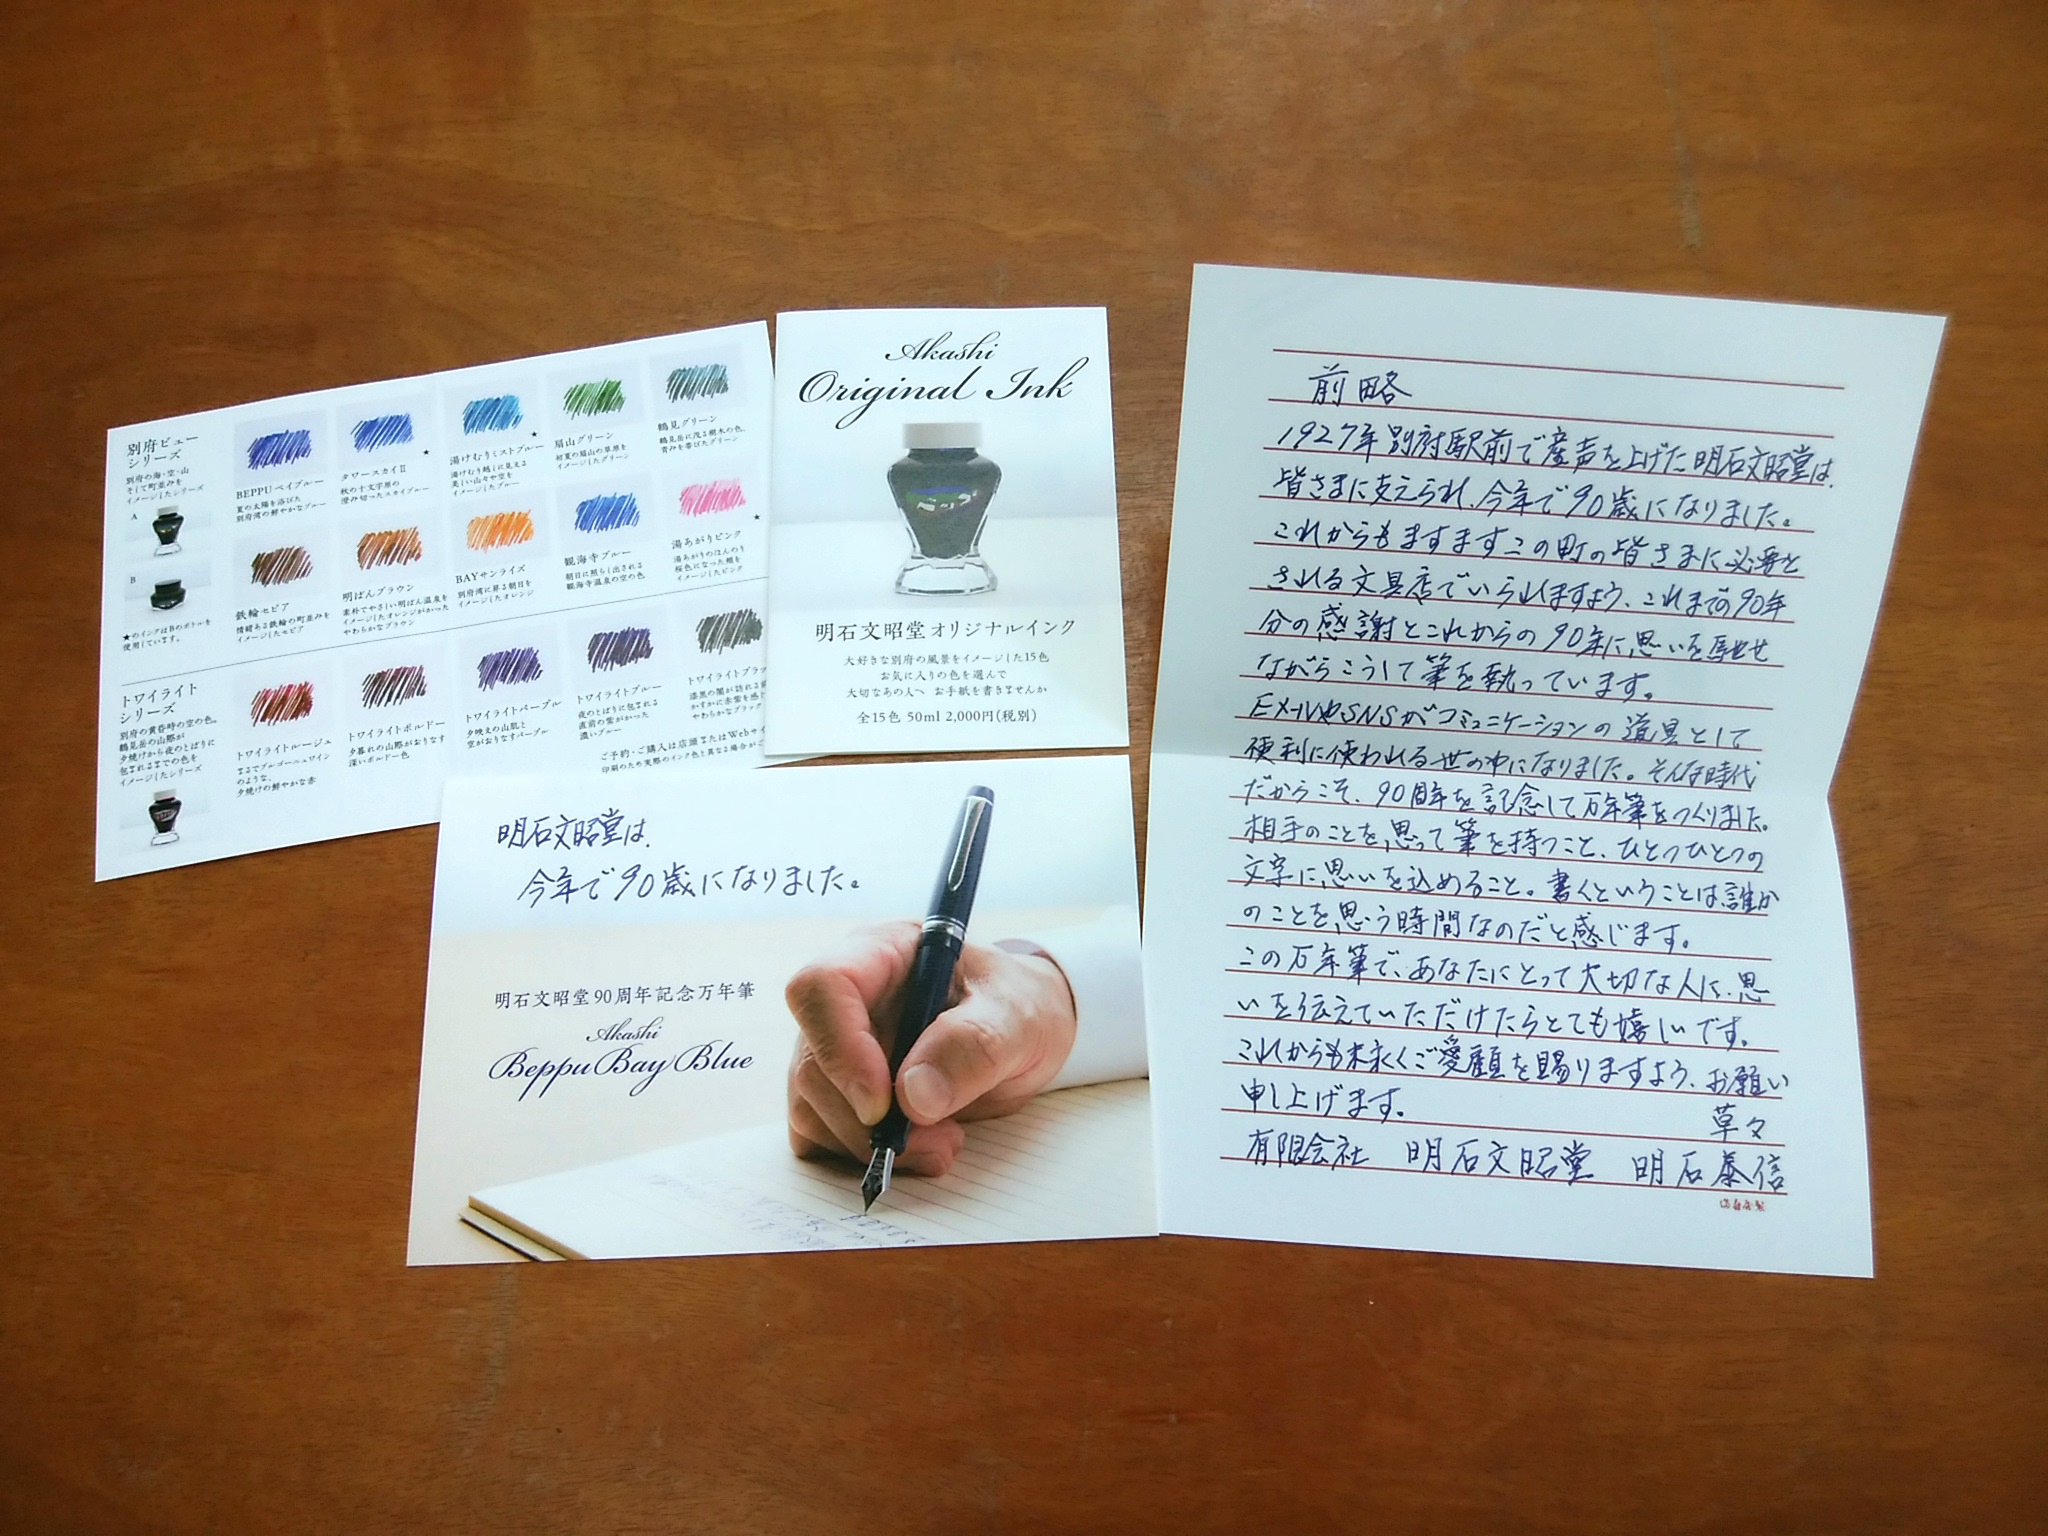 別府ビュー
シリーズ
別府の海・空・山
そして町並みを
イメージしたシリーズ
A
B
★のインクはBのボトルを
使用しています。
BEPPUベイブルー
夏の太陽を浴びた
別府湾の鮮やかなブルー
タワースカイⅡ
★
秋の十文字原の
澄み切ったスカイブルー
湯けむりミストブルー
★
湯けむり越しに見える
美しい山々や空を
イメージしたブルー
扇山グリーン
初夏の扇山の草原を
イメージしたグリーン
鶴見グリーン
鶴見岳に茂る樹木の色、
青みを帯びたグリーン
鉄輪セピア
情緒ある鉄輪の町並みを
イメージしたセピア
明ばんブラウン
素朴でやさしい明ばん温泉を
イメージしたオレンジがかった
やわらかなブラウン
BAYサンライズ
別府湾に昇る朝日を
イメージしたオレンジ
観海寺ブルー
朝日に照らし出される
観海寺温泉の空の色
湯あがりピンク
★
湯あがりのほんのり
桜色になった頬を
イメージしたピンク
トワイライト
シリーズ
別府の黄昏時の空の色。
鶴見岳の山際が
夕焼けから夜のとばりに
包まれるまでの色を
イメージしたシリーズ
トワイライトルージュ
まるでブルゴーニュワイン
のような、
夕焼けの鮮やかな赤
トワイライトボルドー
夕暮れの山際がおりなす
深いボルドー色
トワイライトパープル
夕映えの山肌と
空がおりなすパープル
トワイライトブルー
夜のとばりに包まれる
直前の紫がかった
濃いブルー
トワイライトブラッ
漆黒の闇が訪れる前
かすかに赤紫を感じ
やわらかなブラック
ご予約・ご購入は店頭またはWebサイ
印刷のため実際のインク色と異なる場合がご
Akashi
Original Ink
明石文昭堂オリジナルインク
大好きな別府の風景をイメージした15色
お気に入りの色を選んで
大切なあの人へ お手紙を書きませんか
全15色 50ml 2,000円(税別)
明石文昭堂は、
今年で90歳になりました。
明石文昭堂90周年記念万年筆
Akashi
Beppu Bay Blue
前略
1927年別府駅前で産声を上げた明石文昭堂は、
皆さまに支えられ、今年で90歳になりました。
これからもますますこの町の皆さまに必要と
される文具店でいられますよう、これまでの90年
分の感謝とこれからの90年に思いを馳せせ
ながらこうして筆を執っています。
EメールやSNSがコミュニケーションの道具として
便利に使われる世の中になりました。そんな時代
だからこそ、90周年を記念して万年筆をつくりました。
相手のことを思って筆を持つこと、ひとつひとつの
文字に思いを込めること。書くということは誰か
のことを思う時間なのだと感じます。
この万年筆で、あなたにとって大切な人に、思
いを伝えていただけたらとても嬉しいです。
これからも末永くご愛顧を賜りますよう、お願い
申し上げます。
草々
有限会社 明石文昭堂 明石泰信
満寿屋製